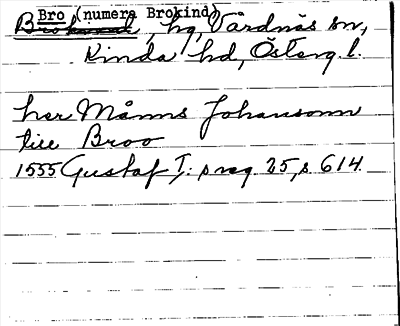 Bro (numera Brokind)
Brokind, hg, Vårdnäs sn,
Kinda hd, Österg. l.
her Måns Johansonn
till Broo
1555 Gustaf I: s reg. 25, s. 614.